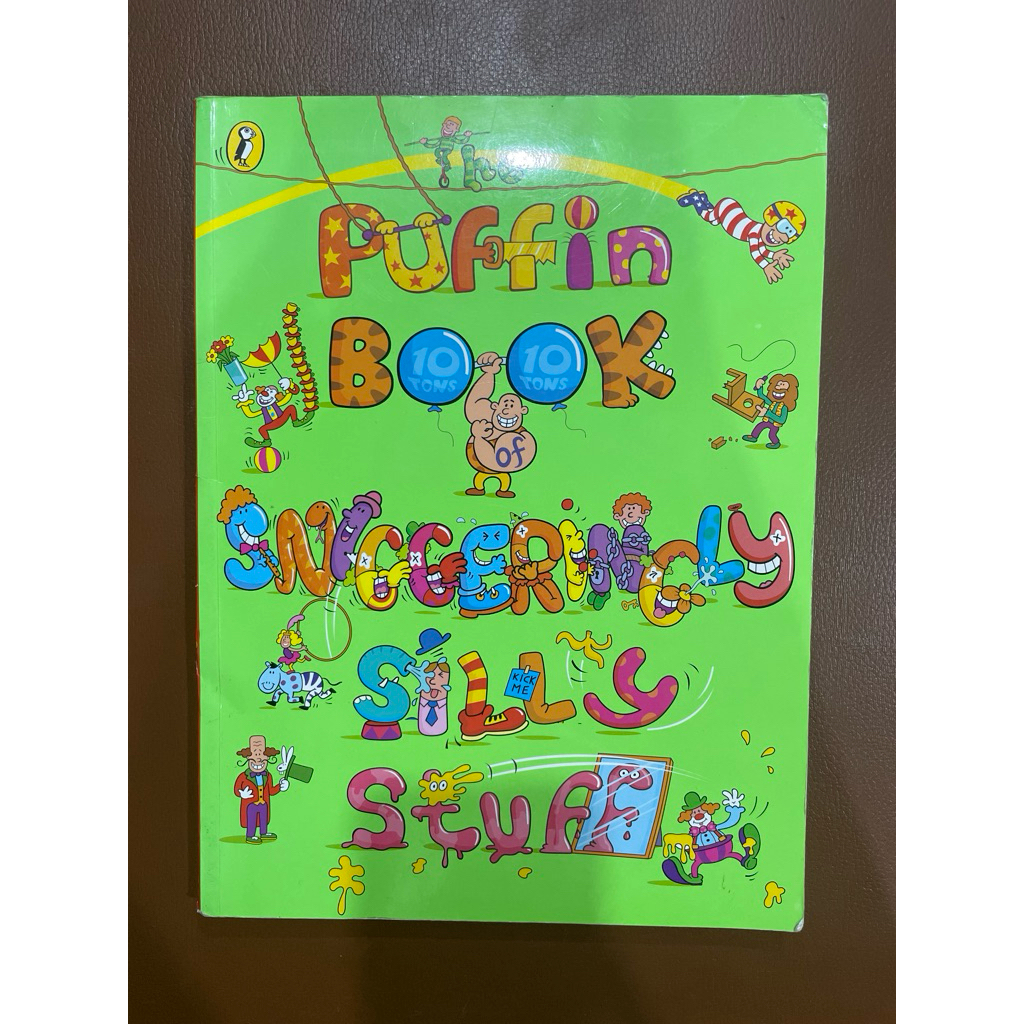 The
Puffin
BOOK
10 TONS
10 TONS
of
SNIGGERINGLY
SiLLY
KICK
ME
Stuff